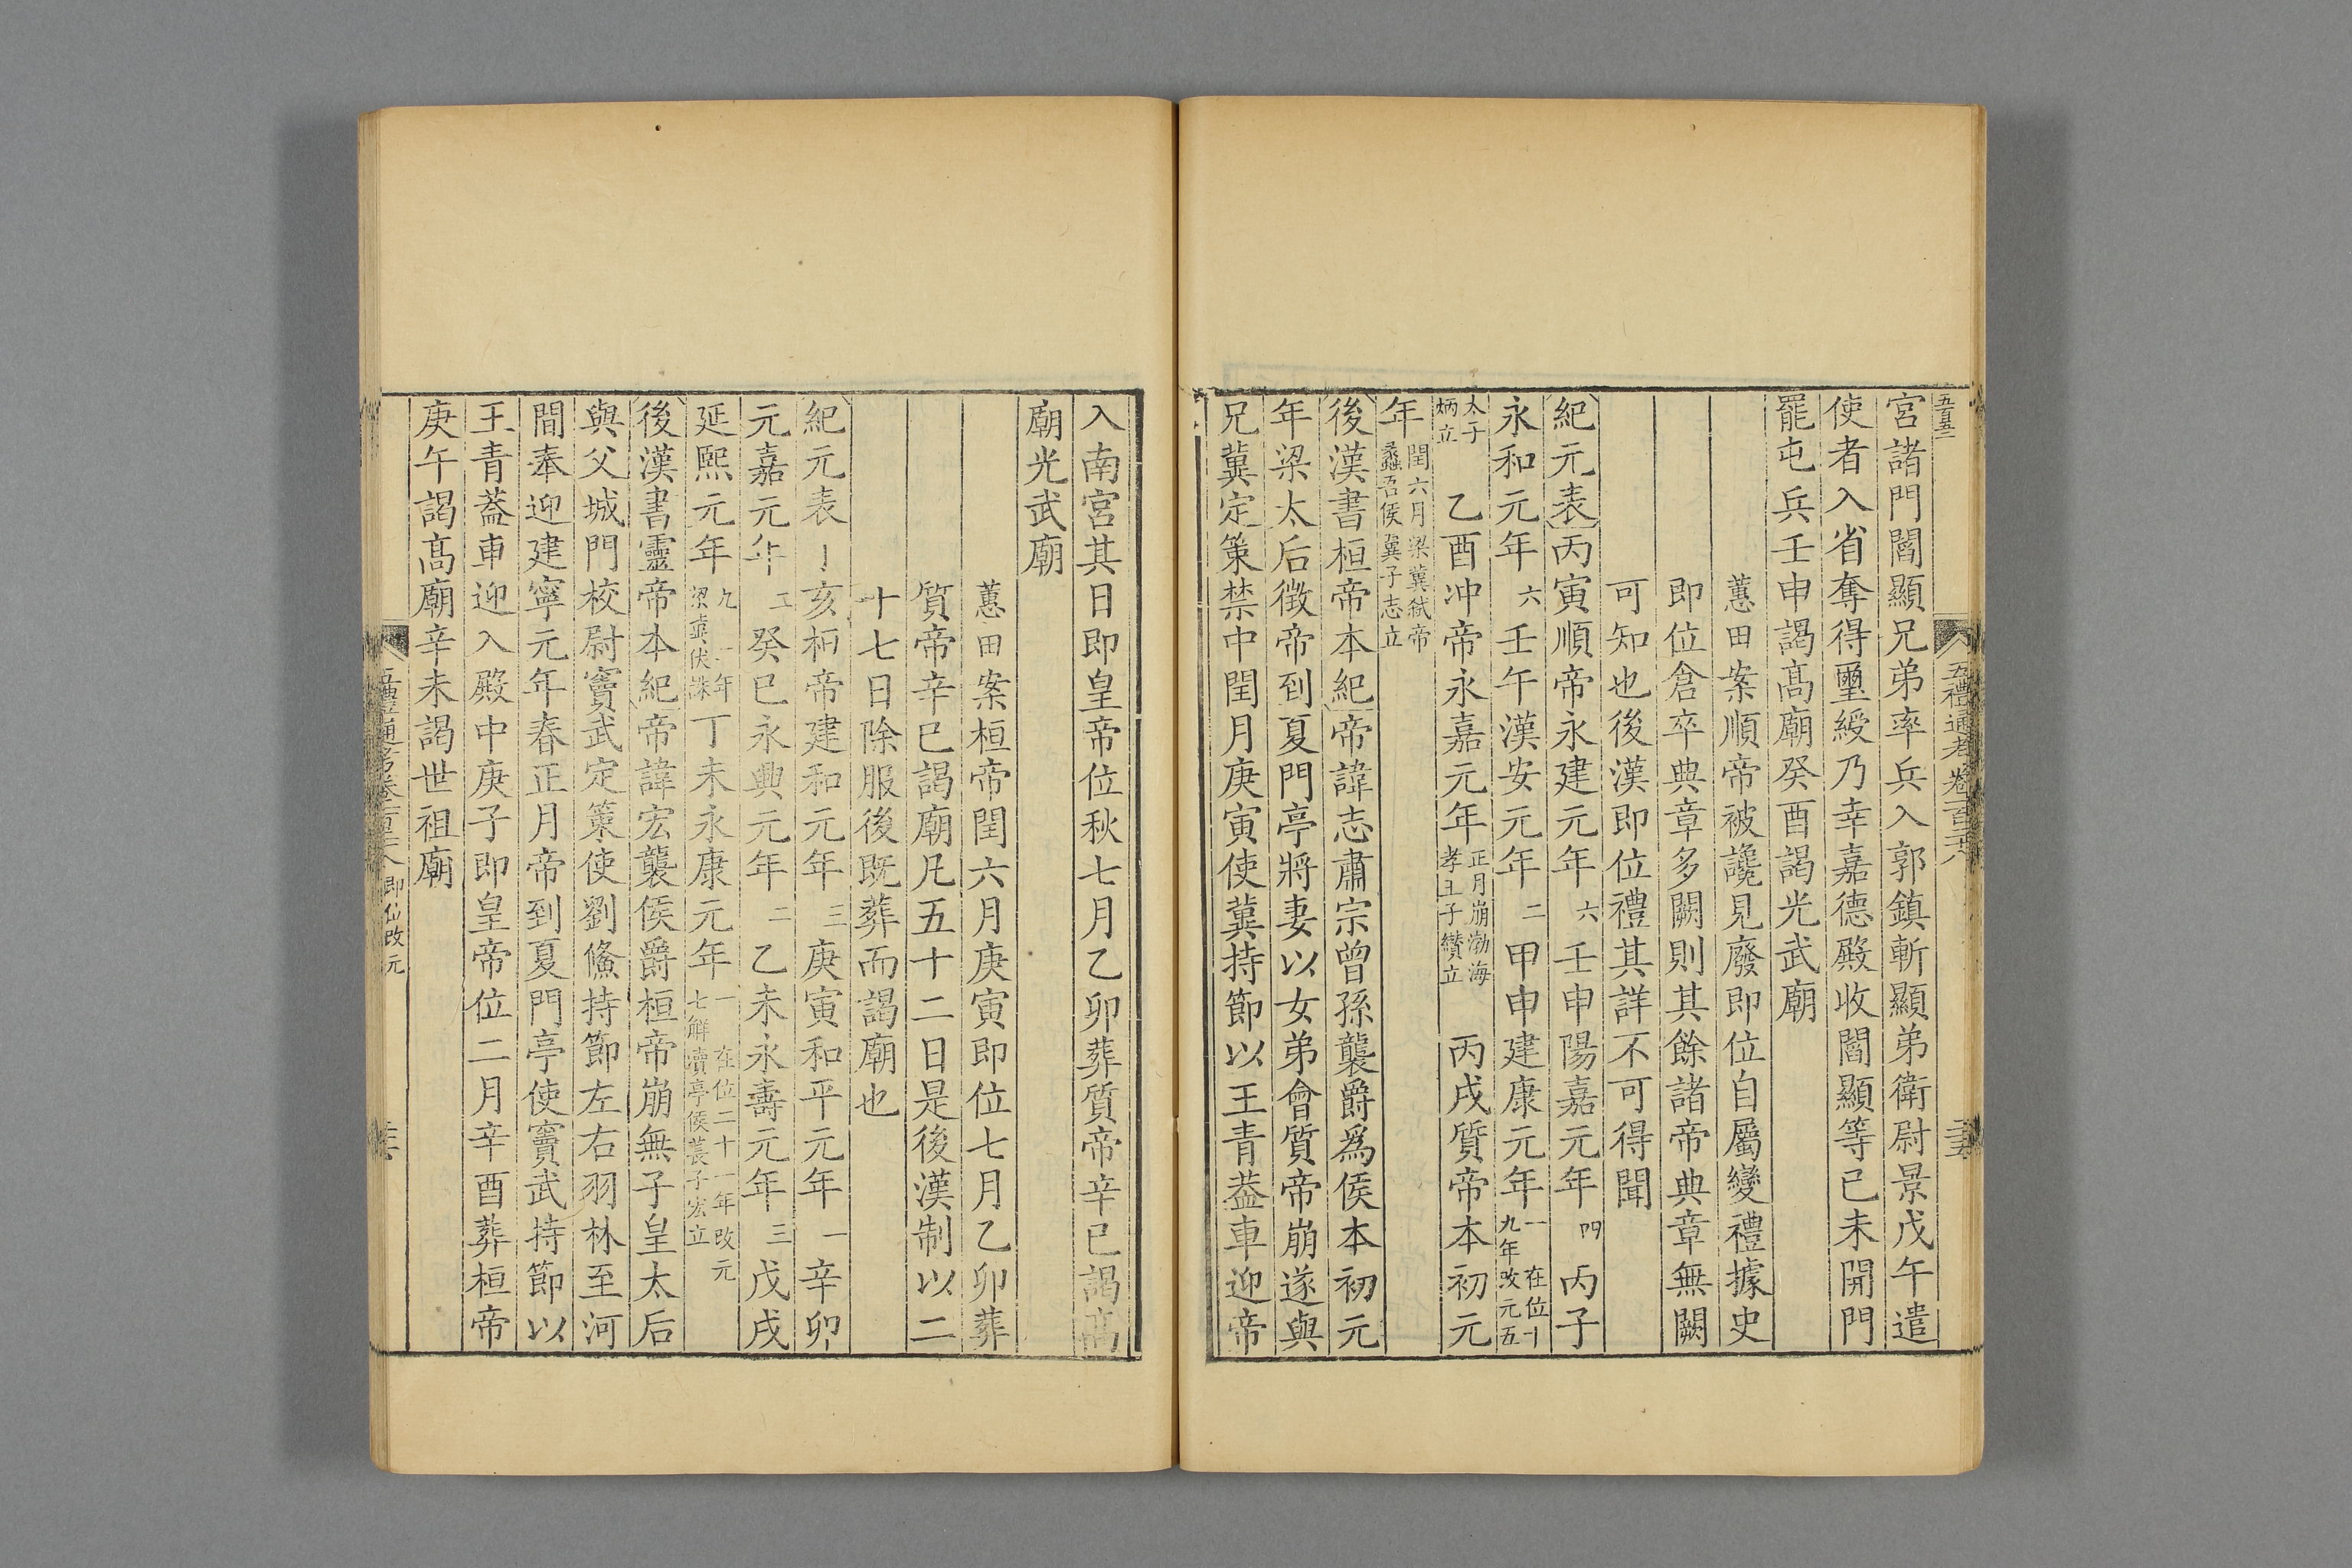 宮諸門閻顯兄弟率兵入郭鎮斬顯弟衛尉景戊午遣
使者入省奪得璽綬乃幸嘉德殿收閻顯等己未開門
罷屯兵壬申謁高廟癸酉謁光武廟
蕙田案順帝被讒見廢即位自屬變禮據史
即位倉卒典章多闕則其餘諸帝典章無闕
可知也後漢即位禮其詳不可得聞
紀元表丙寅順帝永建元年六壬申陽嘉元年四丙子
永和元年六壬午漢安元年二甲申建康元年一在位十九年改元五
太子炳立乙酉冲帝永嘉元年正月崩渤海孝王子纘立丙戌質帝本初元
年閏六月梁冀弒帝蠡吾侯冀子志立
後漢書桓帝本紀帝諱志肅宗曾孫襲爵爲侯本初元
年梁太后徵帝到夏門亭將妻以女弟會質帝崩遂與
兄冀定策禁中閏月庚寅使冀持節以王青葢車迎帝
入南宮其日即皇帝位秋七月乙卯葬質帝辛巳謁高
廟光武廟
蕙田案桓帝閏六月庚寅即位七月乙卯葬
質帝辛巳謁廟凡五十二日是後漢制以二
十七日除服後既葬而謁廟也
紀元表丁亥桓帝建和元年三庚寅和平元年一辛卯
元嘉元年二癸巳永興元年二乙未永壽元年三戊戌
延熙元年九二年梁冀伏誅丁未永康元年一在位二十一年改元七解瀆亭侯萇子宏立
後漢書靈帝本紀帝諱宏襲侯爵桓帝崩無子皇太后
與父城門校尉竇武定策使劉儵持節左右羽林至河
間奉迎建寧元年春正月帝到夏門亭使竇武持節以
王青葢車迎入殿中庚子即皇帝位二月辛酉葬桓帝
庚午謁高廟辛未謁世祖廟
五禮通考卷一百二十八 即位改元